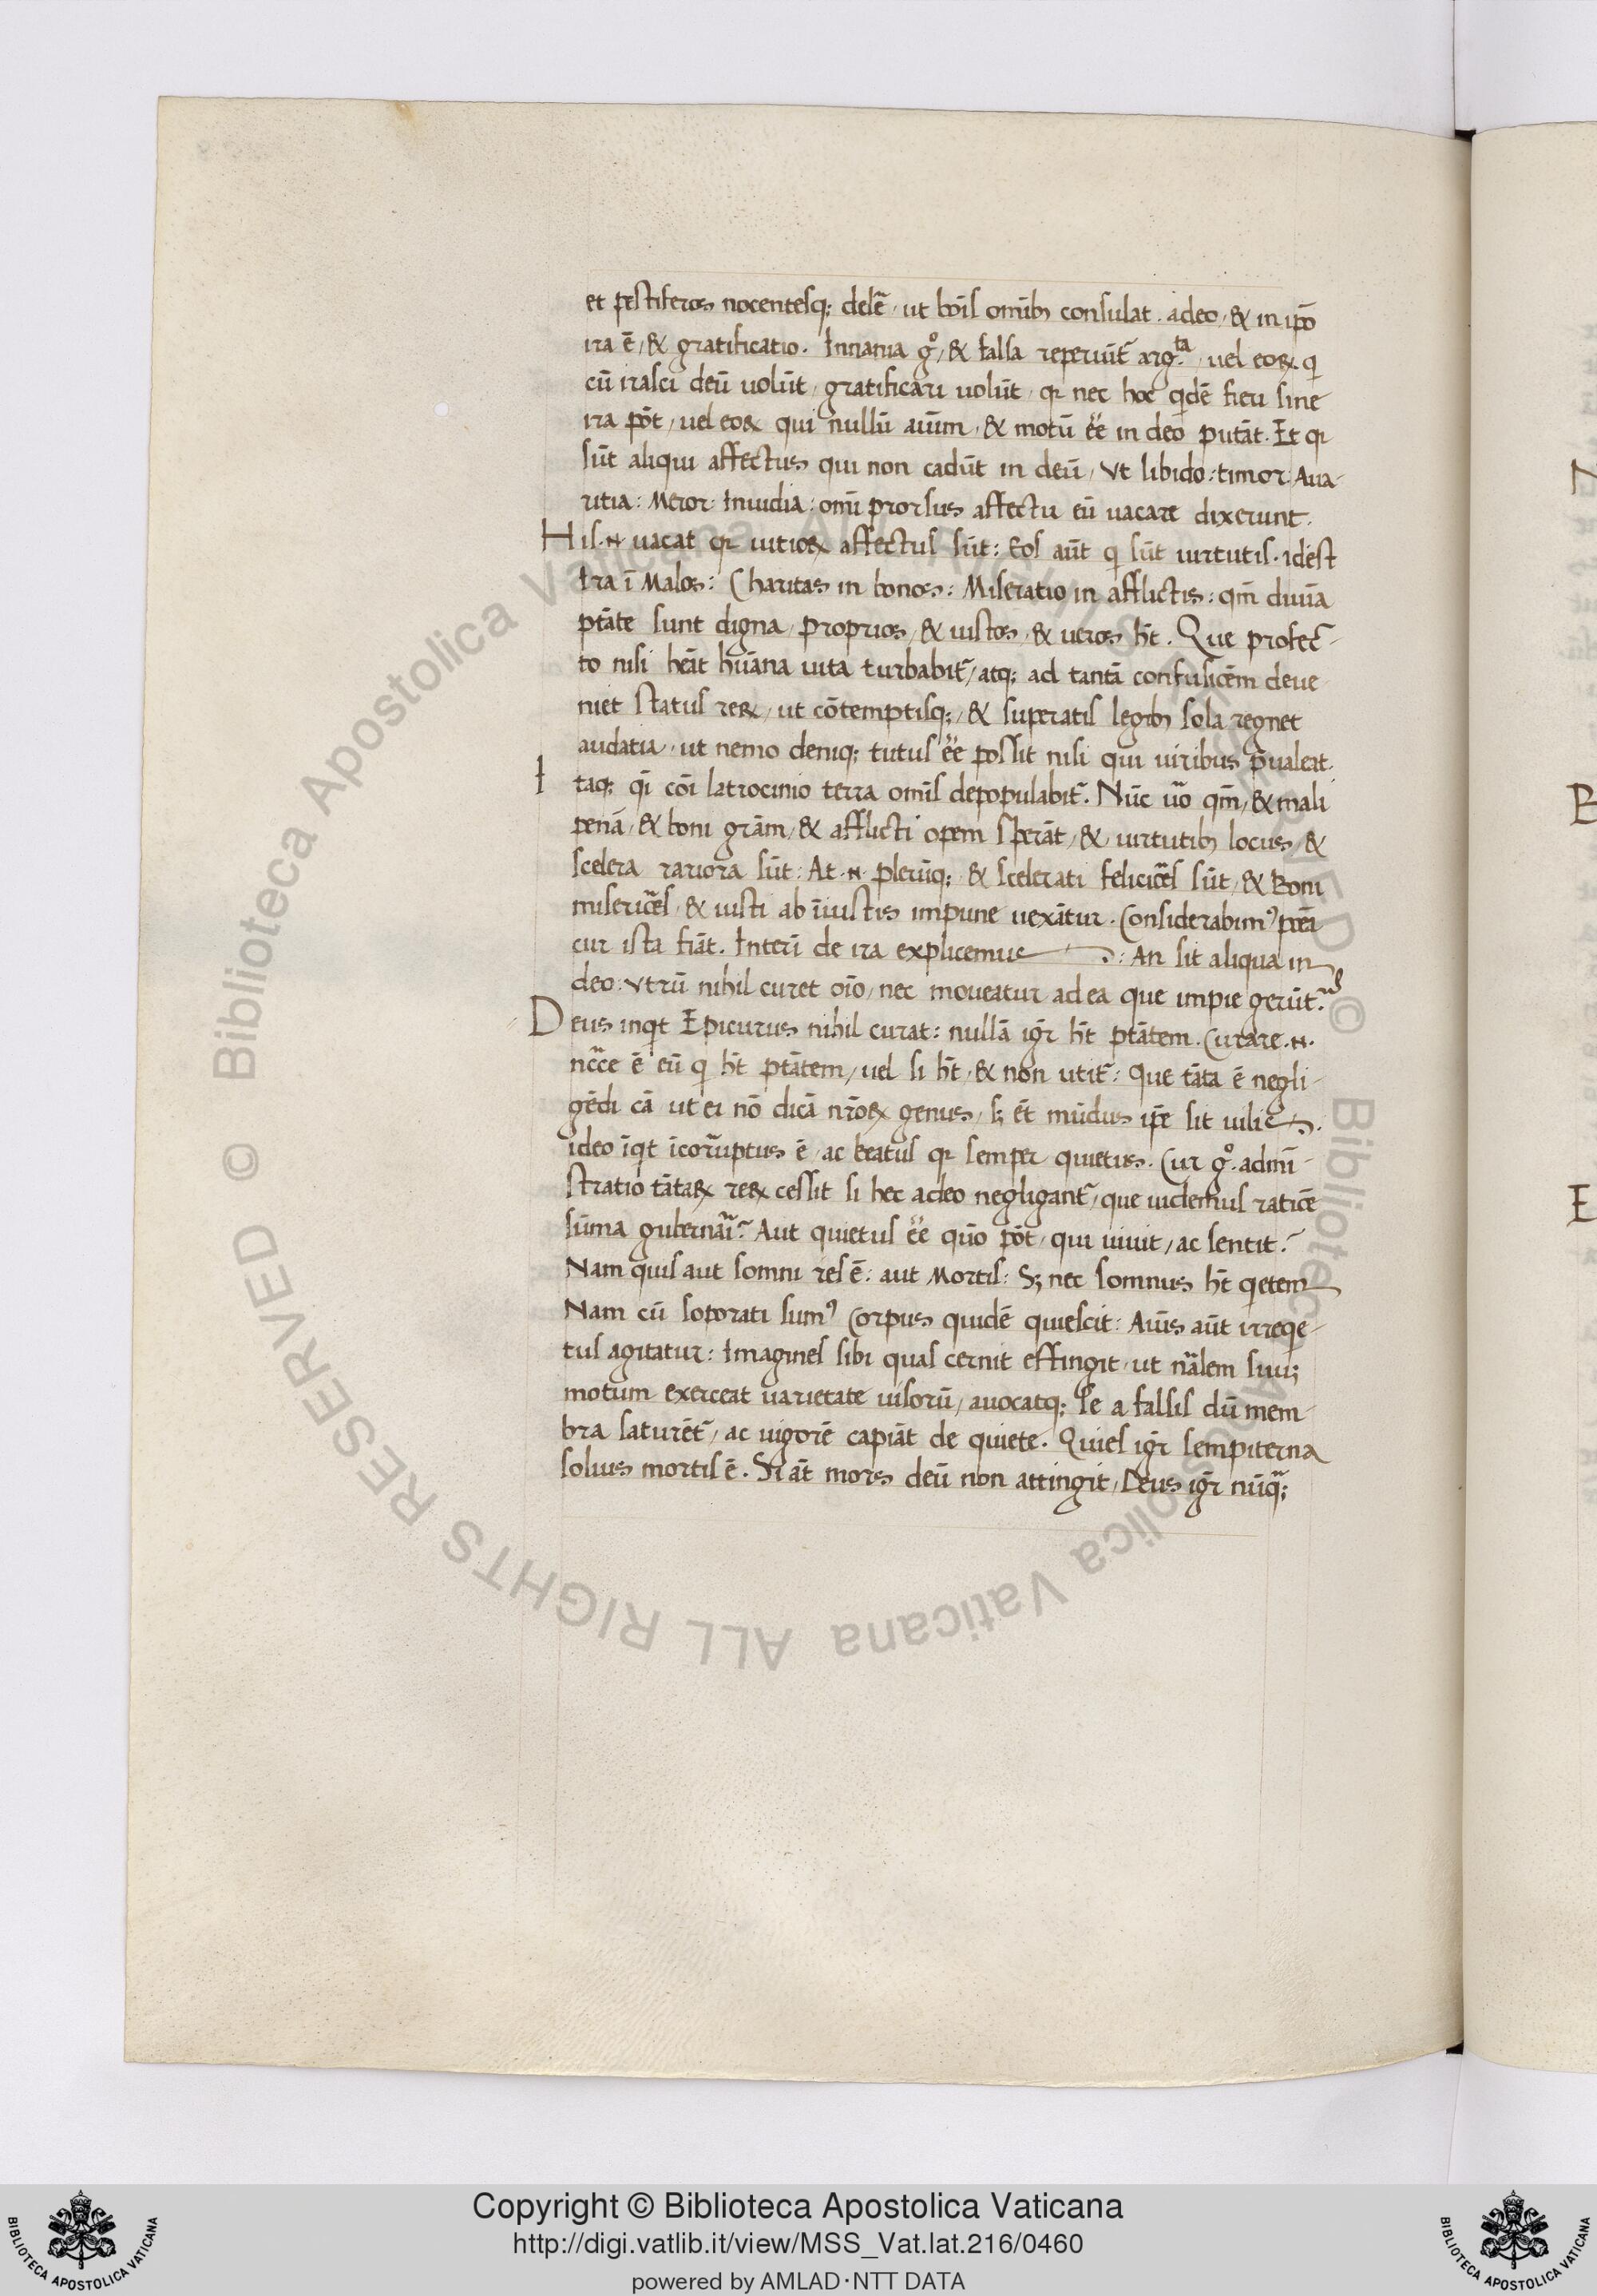 et pestiferos nocentesq; delēt, ut boīs omībꝫ consulat. adeo, & in ipō
ira ē, & gratificatio. Innania gͦ, & falsa reperiūt̄ arg.ᵗᵃ, uel eoꝝ. q̄
cū irasci deū nolūt, gratificari uolūt, qꝛ nec hoc qdē fieri sine
ira pōt, uel eoꝝ qui nullū aīum, & motū ēē in deo putāt. Et qꝛ
sūt aliqui affectus qui non cadūt in deū, Vt libido: timor: Aua-
ritia: Meror: Inuidia: omī prorsus affectu eū uacare dixerunt.
His .n. uacat qꝛ uitioꝝ affectus sūt: Eos aūt q̄ sūt uirtutis. idest
Ira ī Malos: Charitas in bonos: Miseratio in afflictis: qm̄ diuīa
ptāte sunt digna, proprios, & iustos, & ueros ht̄. Que profec-
to nisi heāt hūana uita turbabit̄, atq; ad tantā confusiōem deue-
niet status reꝝ, ut cōtemptisq;, & superatis legibꝫ sola regnet
audatia, ut nemo deniq; tutus ēē possit nisi qui uiribus p̄ualeat.
Itaq; qī cōi latrocinio terra omīs depopulabit̄. Nūc uō qm̄, & mali
penā, & boni grām, & afflicti opem sperāt, & uirtutibꝫ locus, &
scelera rariora sūt: At .n. plerūq; & scelerati feliciōes sūt, & Boni
miseriōes, & iusti ab īiustis impune uexātur. Considerabimꝰ pꝰea
cur ista fiāt. Interī de ira explicemus: An sit aliqua in
deo: Vtrū nihil curet oīo, nec moueatur ad ea que impie gerūt.ᵘʳ
Deus inqt Epicurus nihil curat: nullā igr̄ ht̄ ptātem. Curare .n.
nc̄ce ē eū q̄ ht̄ ptātem, uel si ht̄, & non utit̄: Que tāta ē negli-
gēdi cā ut ei nō dicā nrōꝝ genus, sꝫ ēt mūdus ip̄e sit uilis.
ideo īqt īcorruptus ē, ac beatus qꝛ semper quietus. Cur gͦ. admī-
stratio tātaꝝ reꝝ cessit si hec adeo negligant̄, que uidemus ratiōe
sūma gubernāi? Aut quietus ēē quō pōt, qui uiuit, ac sentit?
Nam quis aut somni res ē: aut Mortis: Sꝫ nec somnus ht̄ qetem
Nam cū soporati sumꝰ Corpus quidē quiescit: Aīus aūt irreqe-
tus agitatur: Imagines sibi quas cernit effingit, ut nālem suuꝫ
motum exerceat uarietate uisorū, auocatq; se a falsis dū mem-
bra saturēt̄, ac uigorē capiāt de quiete. Quies igr̄ sempiterna
solius mortis ē. Si āt mors deū non attingit, Deus igr̄ nūq̄ꝫ
Copyright © Biblioteca Apostolica Vaticana
http://digi.vatlib.it/view/MSS_Vat.lat.216/0460
powered by AMLAD·NTT DATA
BIBLIOTECA APOSTOLICA VATICANA
BIBLIOTECA APOSTOLICA VATICANA
© Biblioteca Apostolica Vaticana ALL RIGHTS RESERVED © Biblioteca Apostolica Vaticana ALL RIGHTS RESERVED